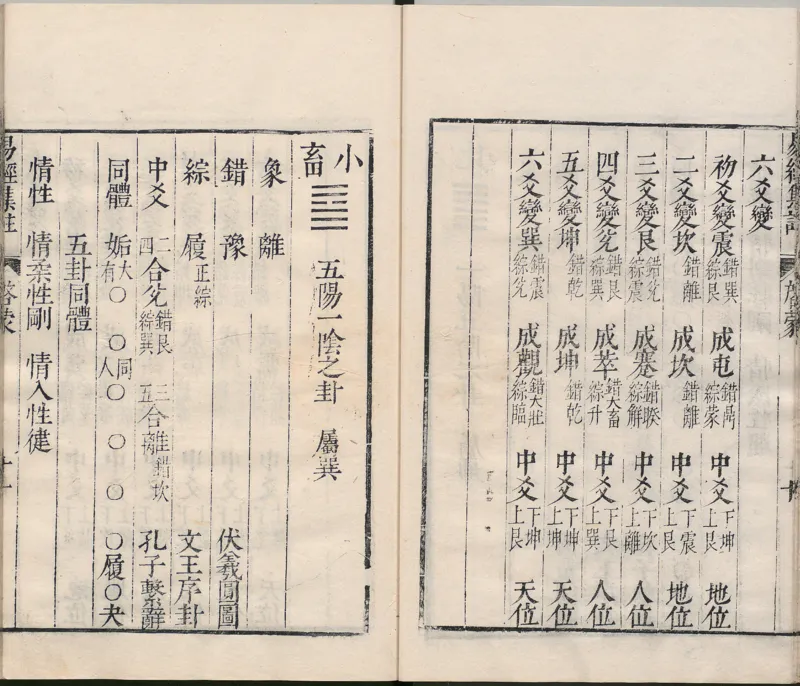 六爻變
初爻變震錯巽綜艮 成屯錯鼎綜蒙 中爻下坤上艮 地位
二爻變坎錯離 成坎錯離 中爻下震上艮 地位
三爻變艮錯兌綜震 成蹇錯睽綜解 中爻下坎上離 人位
四爻變兌錯艮綜巽 成萃錯大畜綜升 中爻下艮上巽 人位
五爻變坤錯乾 成坤錯乾 中爻下坤上坤 天位
六爻變巽錯震綜兌 成觀錯大壯綜臨 中爻下坤上艮 天位
小畜 五陽一陰之卦 屬巽
象 離
錯 豫 伏羲圓圖
綜 履正綜 文王序卦
中爻 二四合兌錯艮綜巽 三五合離錯坎 孔子繫辭
同體 姤大有○同人○ ○ ○ ○履○夬
五卦同體
情性 情柔性剛 情入性健
易經集註 啓蒙